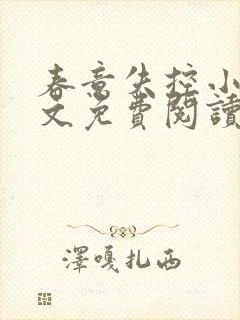 春意失控小
文免費閱讀
澤嘎扎西